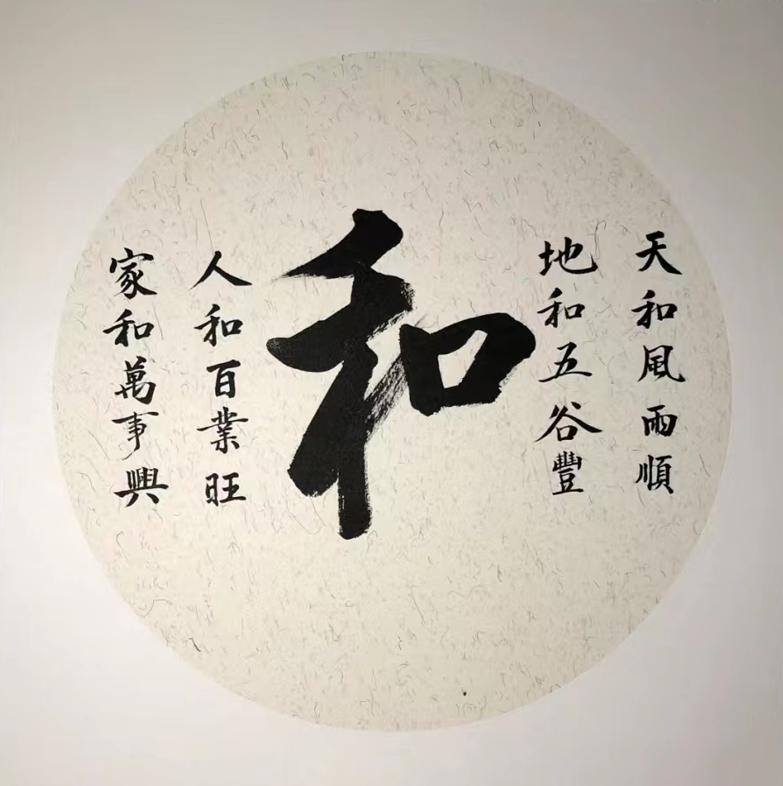 天和風雨順
地和五谷豐
和
人和百業旺
家和萬事興